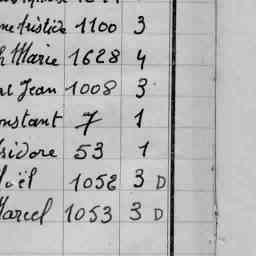 1100 3
Marie 1628 4
Jean 1008 3
onstant 7 1
sidore 53 1
oël 1052 3 D
arcel 1053 3 D